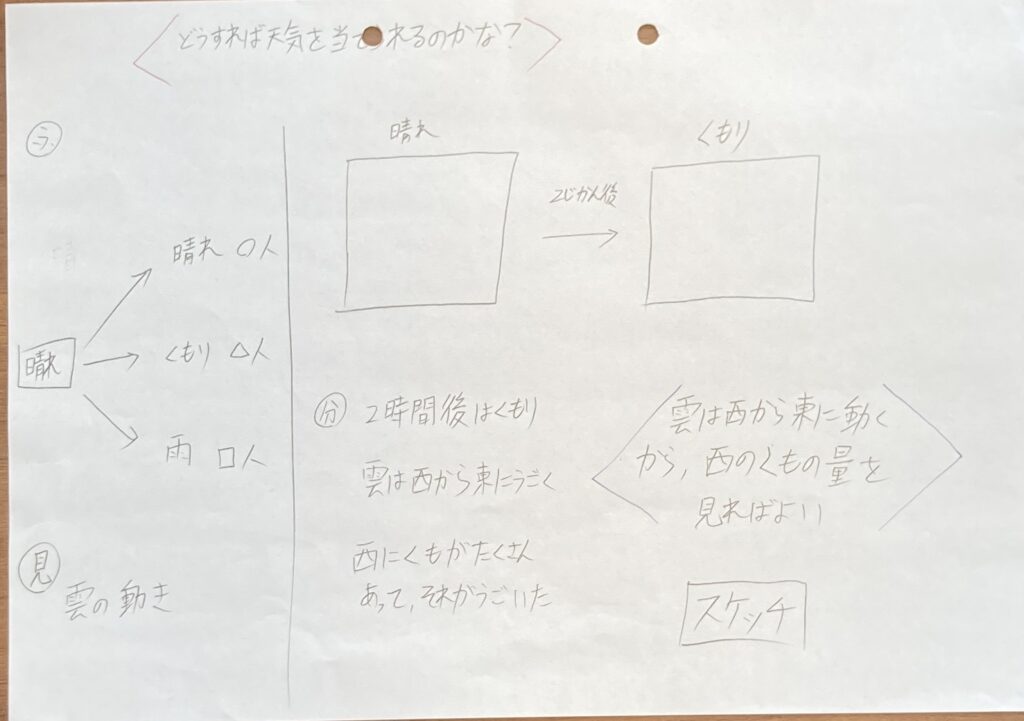 どうすれば天気を当てられるのかな?
予
晴れ
晴れ ○人
くもり △人
雨 □人
見
雲の動き
晴れ
2じかん後
くもり
分
2時間後はくもり
雲は西から東にうごく
西にくもがたくさん
あって,それがうごいた
雲は西から東に動く
から,西のくもの量を
見ればよい
スケッチ